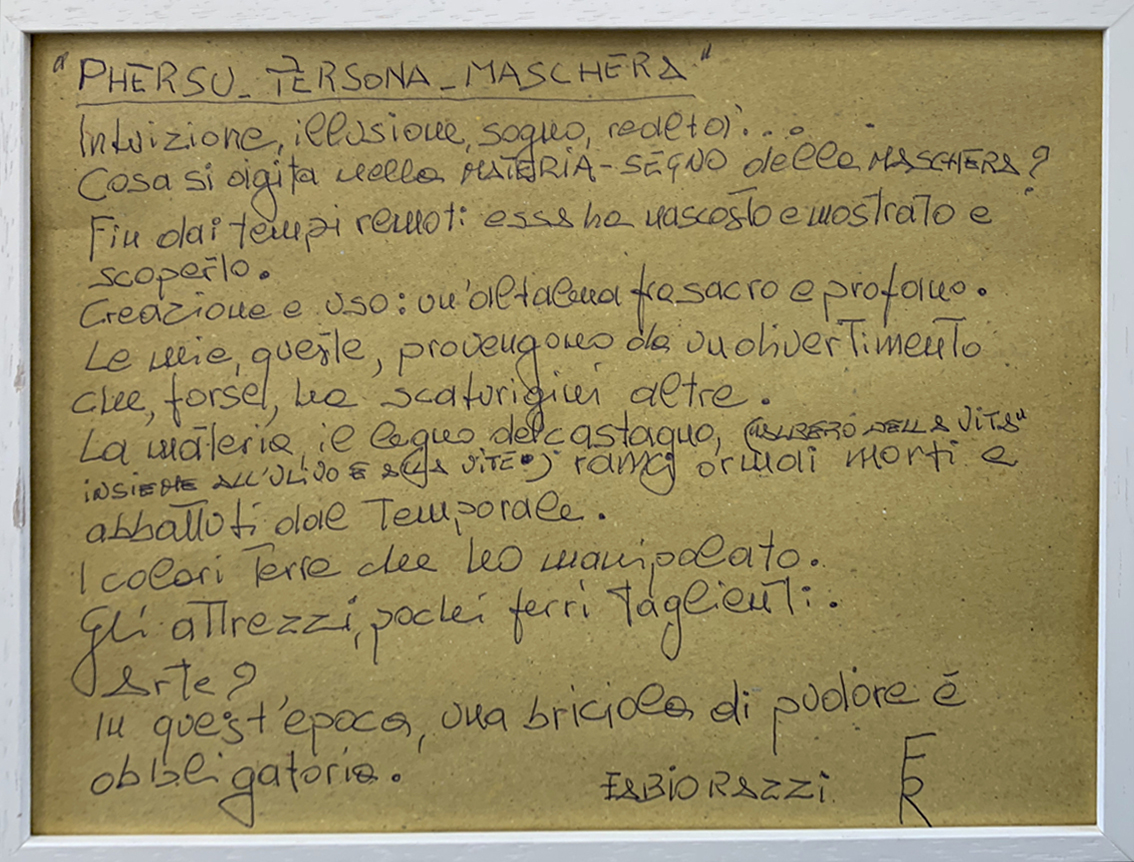 "PHERSU_PERSONA_MASCHERA"
Intuizione, illusione, sogno, realtà...
Cosa si digita nella MATERIA-SEGNO della MASCHERA?
Fin dai tempi remoti essa ha nascosto e mostrato e
scoperto.
Creazione e uso: un'altalena fra sacro e profano.
Le mie, queste, provengono da un divertimento
che, forse, ha scaturigini altre.
La materia, il legno del castagno, ("ALBERO DELLA VITA"
INSIEME ALL'ULIVO E ALLA VITE.) rami ormai morti e
abbattuti dal Temporale.
I colori Terre che ho manipolato.
Gli attrezzi, pochi ferri Taglienti.
Arte?
In quest'epoca, una briciola di pudore é
obbligatoria.
FABIO RAZZI FR